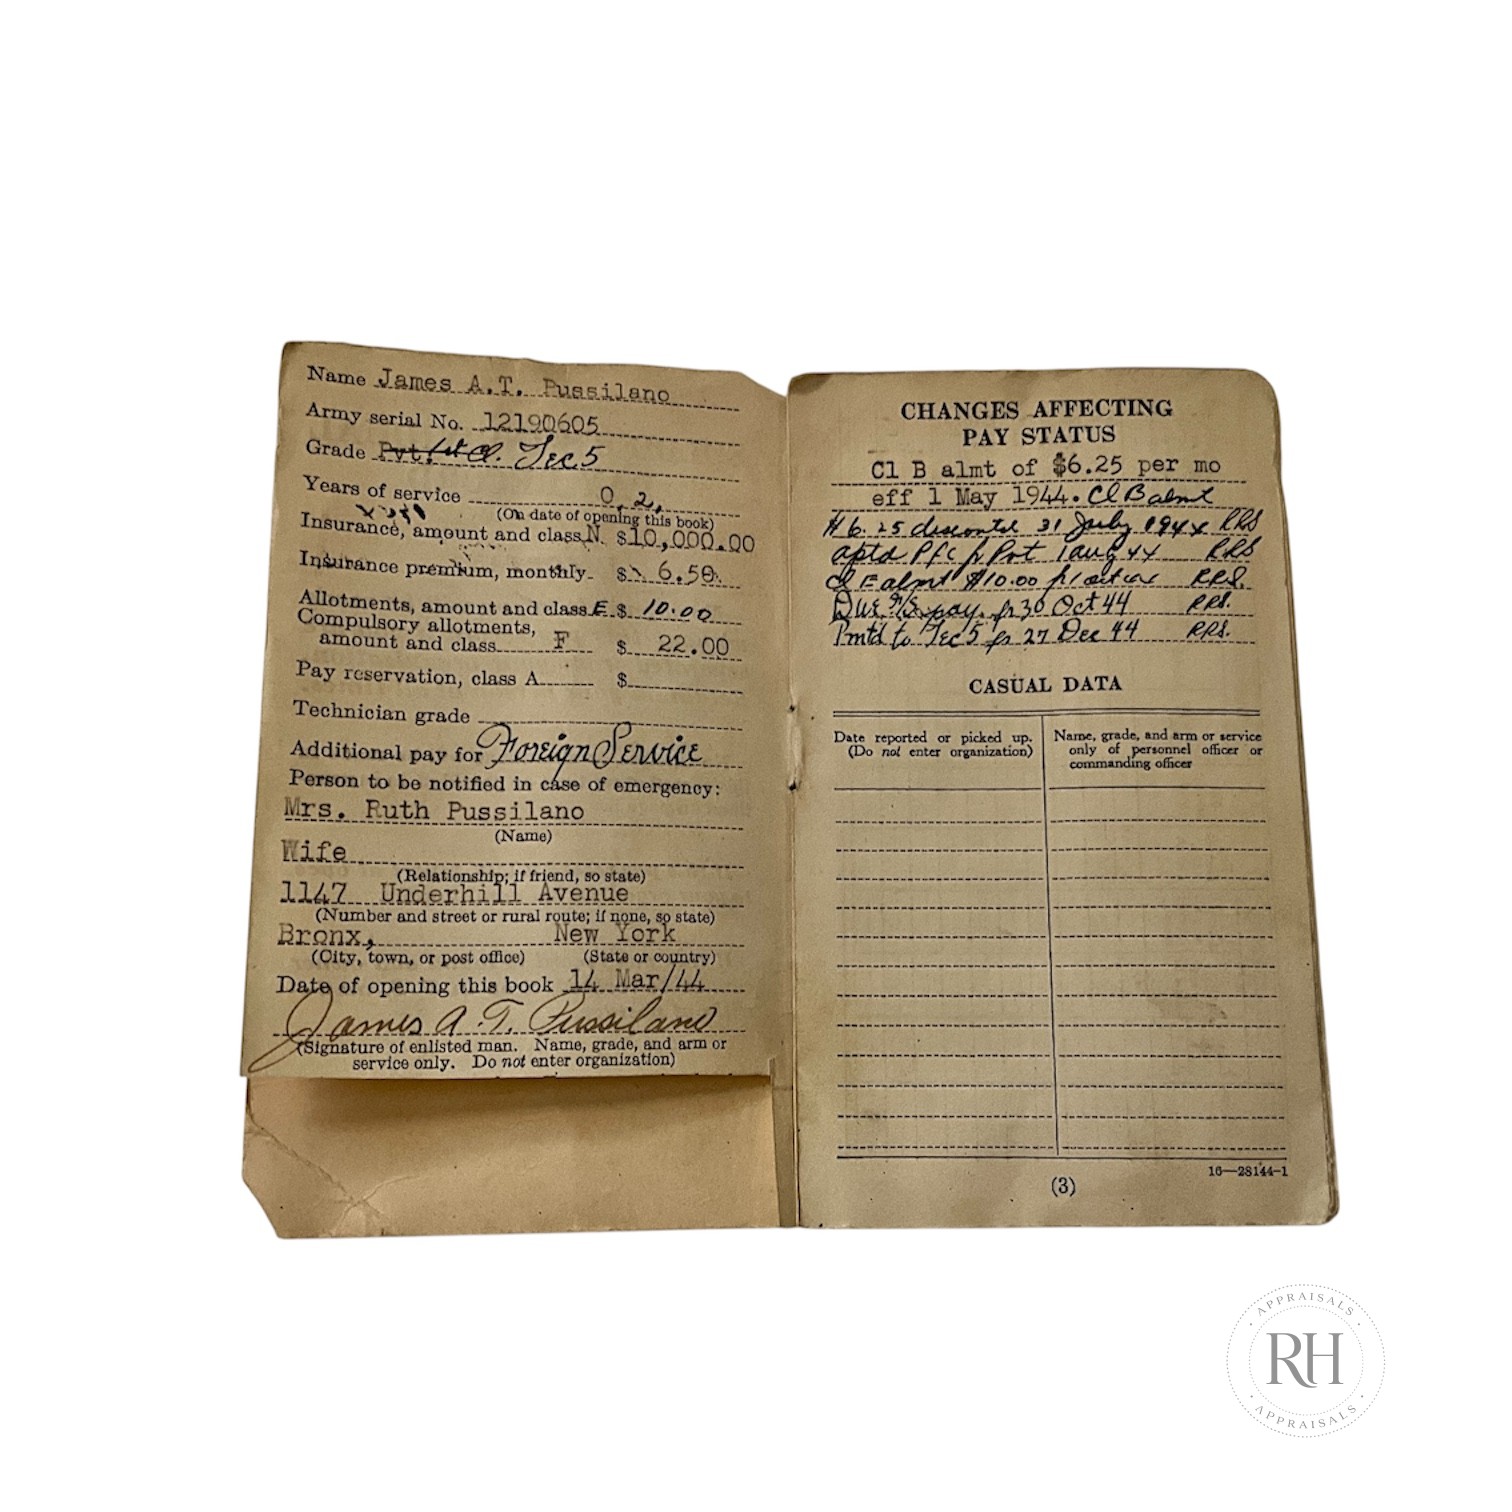 Name James A.T. Pussilano
Army serial No. 12190605
Grade Pvt. 1st Cl. Tec 5
Years of service 0 2
(On date of opening this book)
Insurance, amount and class N. $10,000.00
Insurance premium, monthly $ 6.50
Allotments, amount and class E $ 10.00
Compulsory allotments,
amount and class F $ 22.00
Pay reservation, class A $
Technician grade
Additional pay for Foreign Service
Person to be notified in case of emergency:
Mrs. Ruth Pussilano
(Name)
Wife
(Relationship; if friend, so state)
1147 Underhill Avenue
(Number and street or rural route; if none, so state)
Bronx, New York
(City, town, or post office) (State or country)
Date of opening this book 14 Mar/44
James A.T. Pussilano
(Signature of enlisted man. Name, grade, and arm or
service only. Do not enter organization)
CHANGES AFFECTING
PAY STATUS
Cl B almt of $6.25 per mo
eff 1 May 1944. Cl B almt
$6.25 discontd 31 July 1944 RRS
aptd Pfc fr Pvt 1 Aug 44 RRS
Cl E almt $10.00 RRS.
Due F/S pay fr 30 Oct 44 RRS.
Pmtd to Tec 5 fr 27 Dec 44 RRS.
CASUAL DATA
Date reported or picked up.
(Do not enter organization)
Name, grade, and arm or service
only of personnel officer or
commanding officer
16—28144-1
(3)
APPRAISALS
RH
APPRAISALS